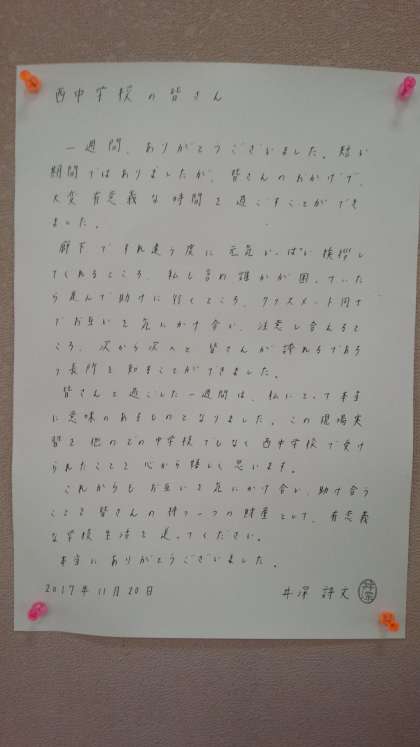 西中学校の皆さん
一週間、ありがとうございました。短い
期間ではありましたが、皆さんのおかげで、
大変有意義な時間を過ごすことができ
ました。
廊下ですれ違う度に元気いっぱい挨拶し
てくれるところ、私も含め誰かが困っていた
ら進んで助けに行くところ、クラスメート同士
でお互いを気にかけ合い、注意し合えるとこ
ろ、次から次へと皆さんが誇れるであろ
う長所を知ることができました。
皆さんと過ごした一週間は、私にとって本当
に意味のあるものとなりました。この現場実
習を他のどの中学校でもなく西中学校で受け
られたことを心から嬉しく思います。
これからもお互いを気にかけ合い、助け合う
ことを皆さんの持つ一つの財産として、有意義
な学校生活を送ってください。
本当にありがとうございました。
2017年11月20日 井深 詩文 井深